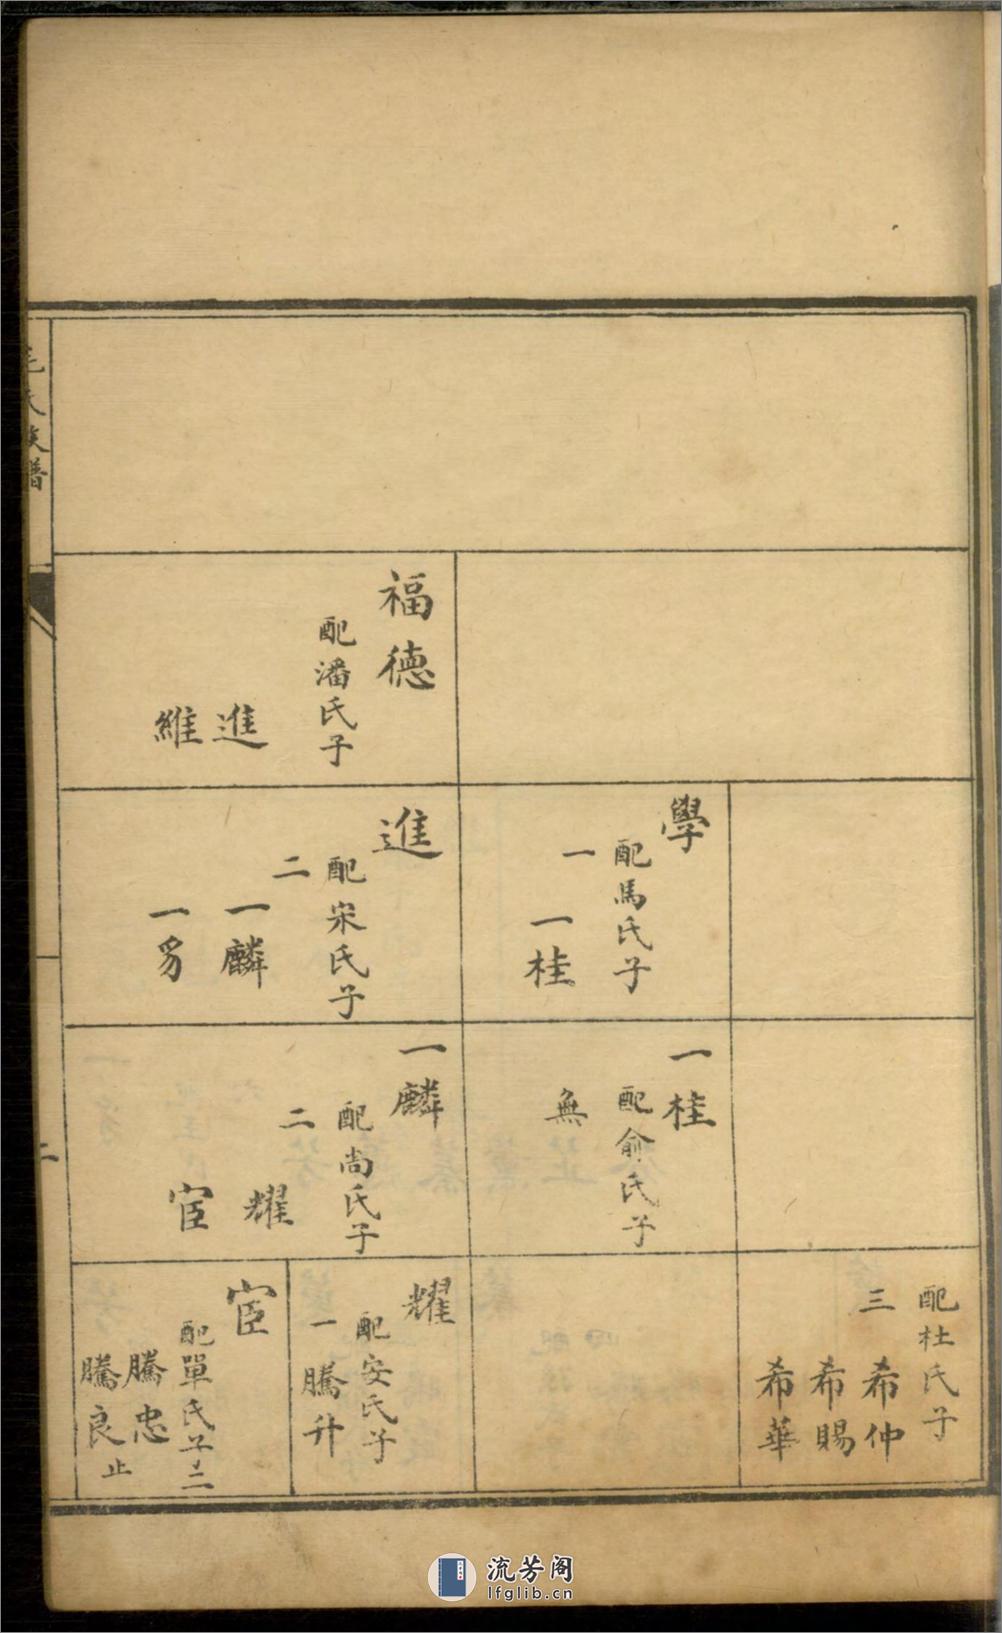 福德
配潘氏子
進
維
學
配馬氏子
一
一桂
進
配宋氏子
二
一麟
一豸
一桂
配俞氏子
無
一麟
配尚氏子
二
耀
宦
配杜氏子
三
希仲
希賜
希華
耀
配安氏子
一
騰升
宦
配單氏子二
騰忠
騰良
止
氏族譜
二
流芳阁
lfglib.cn